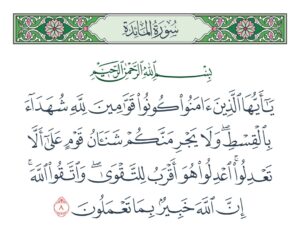 سُورَةُ المَائِدَةِ
بِسْمِ ٱللَّهِ ٱلرَّحْمَٰنِ ٱلرَّحِيمِ
يَٰٓأَيُّهَا ٱلَّذِينَ ءَامَنُوا۟ كُونُوا۟ قَوَّٰمِينَ لِلَّهِ شُهَدَآءَ
بِٱلْقِسْطِ ۖ وَلَا يَجْرِمَنَّكُمْ شَنَـَٔانُ قَوْمٍ عَلَىٰٓ أَلَّا
تَعْدِلُوا۟ ۚ ٱعْدِلُوا۟ هُوَ أَقْرَبُ لِلتَّقْوَىٰ ۖ وَٱتَّقُوا۟ ٱللَّهَ ۚ
إِنَّ ٱللَّهَ خَبِيرٌۢ بِمَا تَعْمَلُونَ ٨